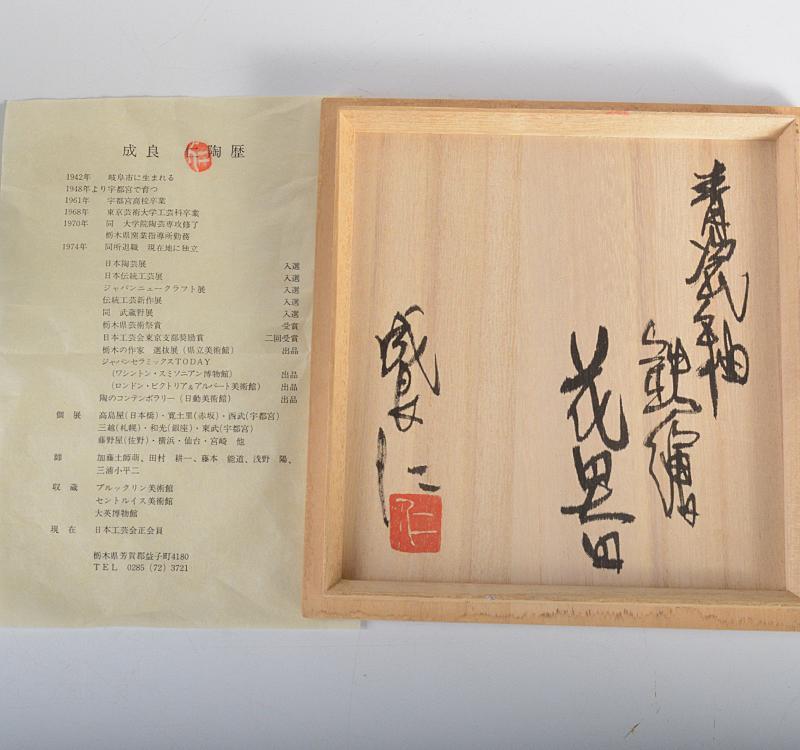 成良 仁 陶歴
1942年 岐阜市に生まれる
1948年より宇都宮で育つ
1961年 宇都宮高校卒業
1968年 東京芸術大学工芸科卒業
1970年 同 大学院陶芸専攻修了
栃木県窯業指導所勤務
1974年 同所退職 現在地に独立
日本陶芸展 入選
日本伝統工芸展 入選
ジャパンニュークラフト展 入選
伝統工芸新作展 入選
同 武蔵野展 入選
栃木県芸術祭賞 受賞
日本工芸会東京支部奨励賞 二回受賞
栃木の作家 選抜展(県立美術館) 出品
ジャパンセラミックスTODAY
(ワシントン・スミソニアン博物館) 出品
(ロンドン・ビクトリア&アルバート美術館) 出品
陶のコンテンポラリー(日動美術館) 出品
個展 高島屋(日本橋)・寛土里(赤坂)・西武(宇都宮)
三越(札幌)・和光(銀座)・東武(宇都宮)
藤野屋(佐野)・横浜・仙台・宮崎 他
師 加藤土師萌、田村 耕一、藤本 能道、浅野 陽、
三浦小平二
収蔵 ブルックリン美術館
セントルイス美術館
大英博物館
現在 日本工芸会正会員
栃木県芳賀郡益子町4180
TEL 0285(72)3721
青瓷釉
鉄繍
花器
成良 仁
仁